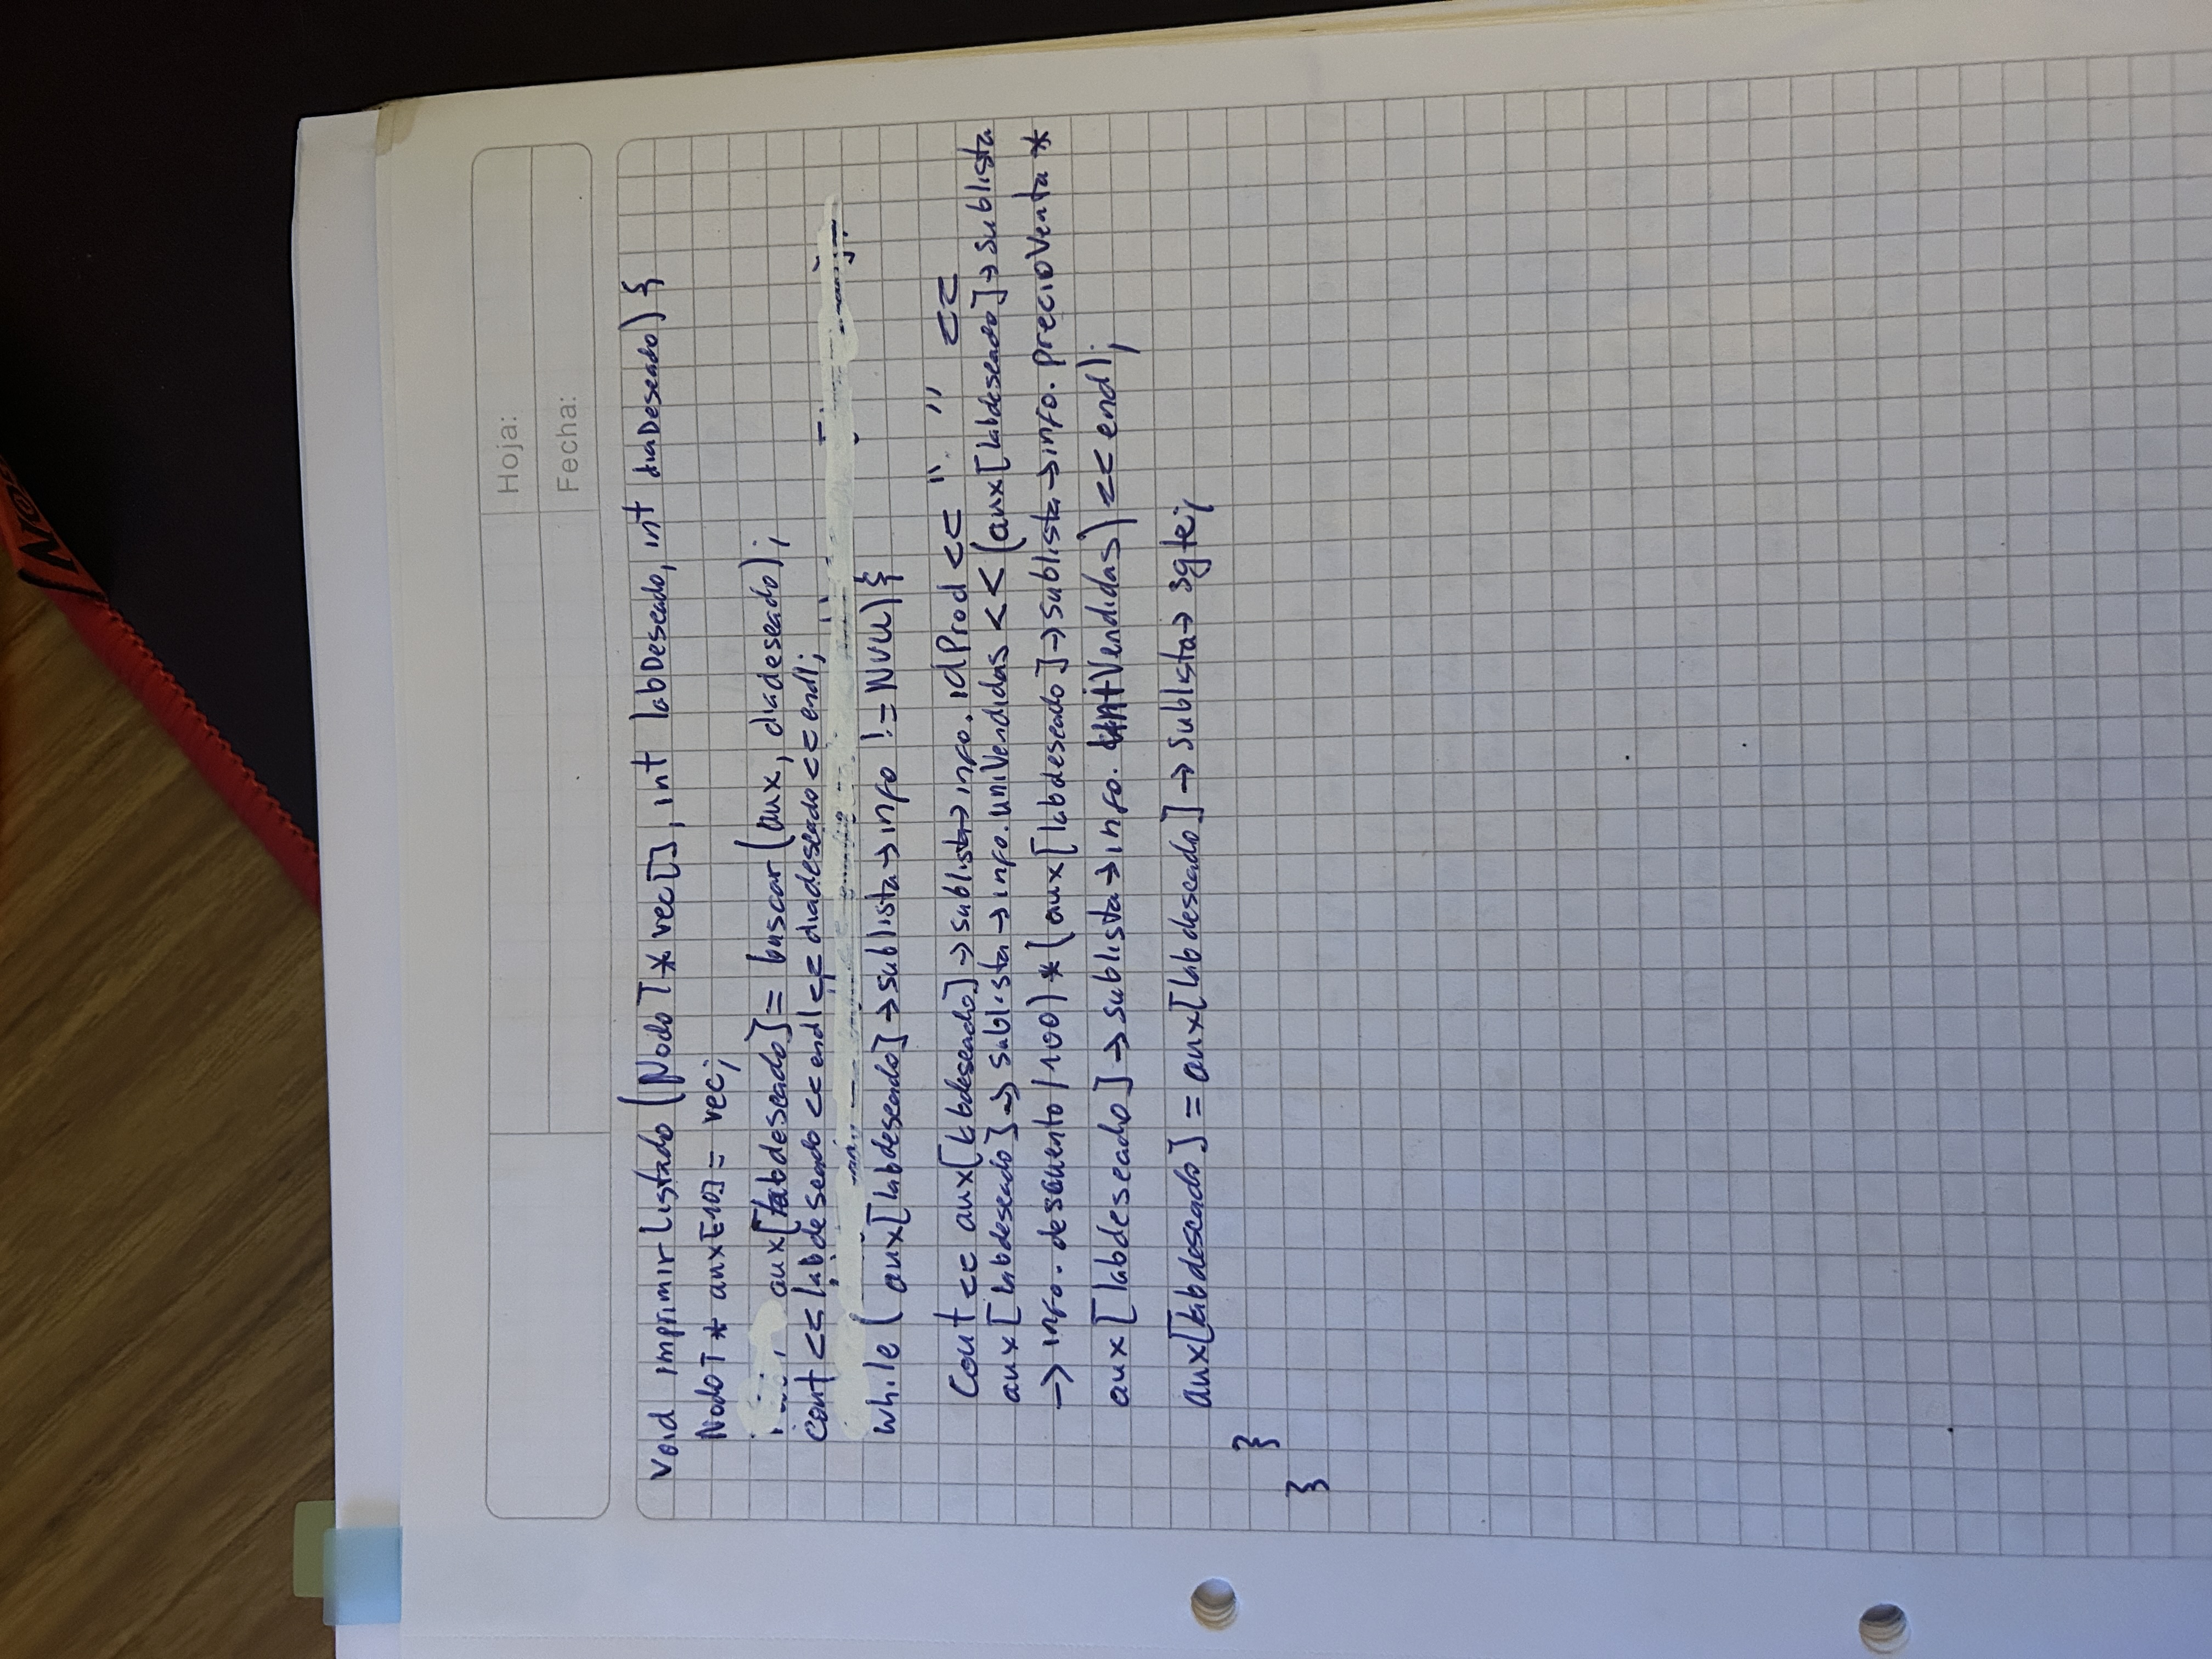 No
Hoja:
Fecha:
void imprimirListado (NodoT* vec[], int labDeseado, int diaDeseado) {
NodoT * aux[10] = vec;
aux[labdeseado] = buscar (aux, diadeseado);
cout << labdeseado << endl << diadeseado << endl;
while ( aux[labdeseado] → sublista → info != NULL) {
Cout << aux[labdeseado] → sublista → info. idProd << " " <<
aux [labdeseado] → sublista → info. uniVendidas << (aux[labdeseado] → sublista
→ info. descuento / 100) * (aux[labdeseado] → sublista → info. precioVenta *
aux [labdeseado] → sublista → info. uniVendidas) << endl;
aux[labdeseado] = aux[labdeseado] → sublista → sgte;
}
}